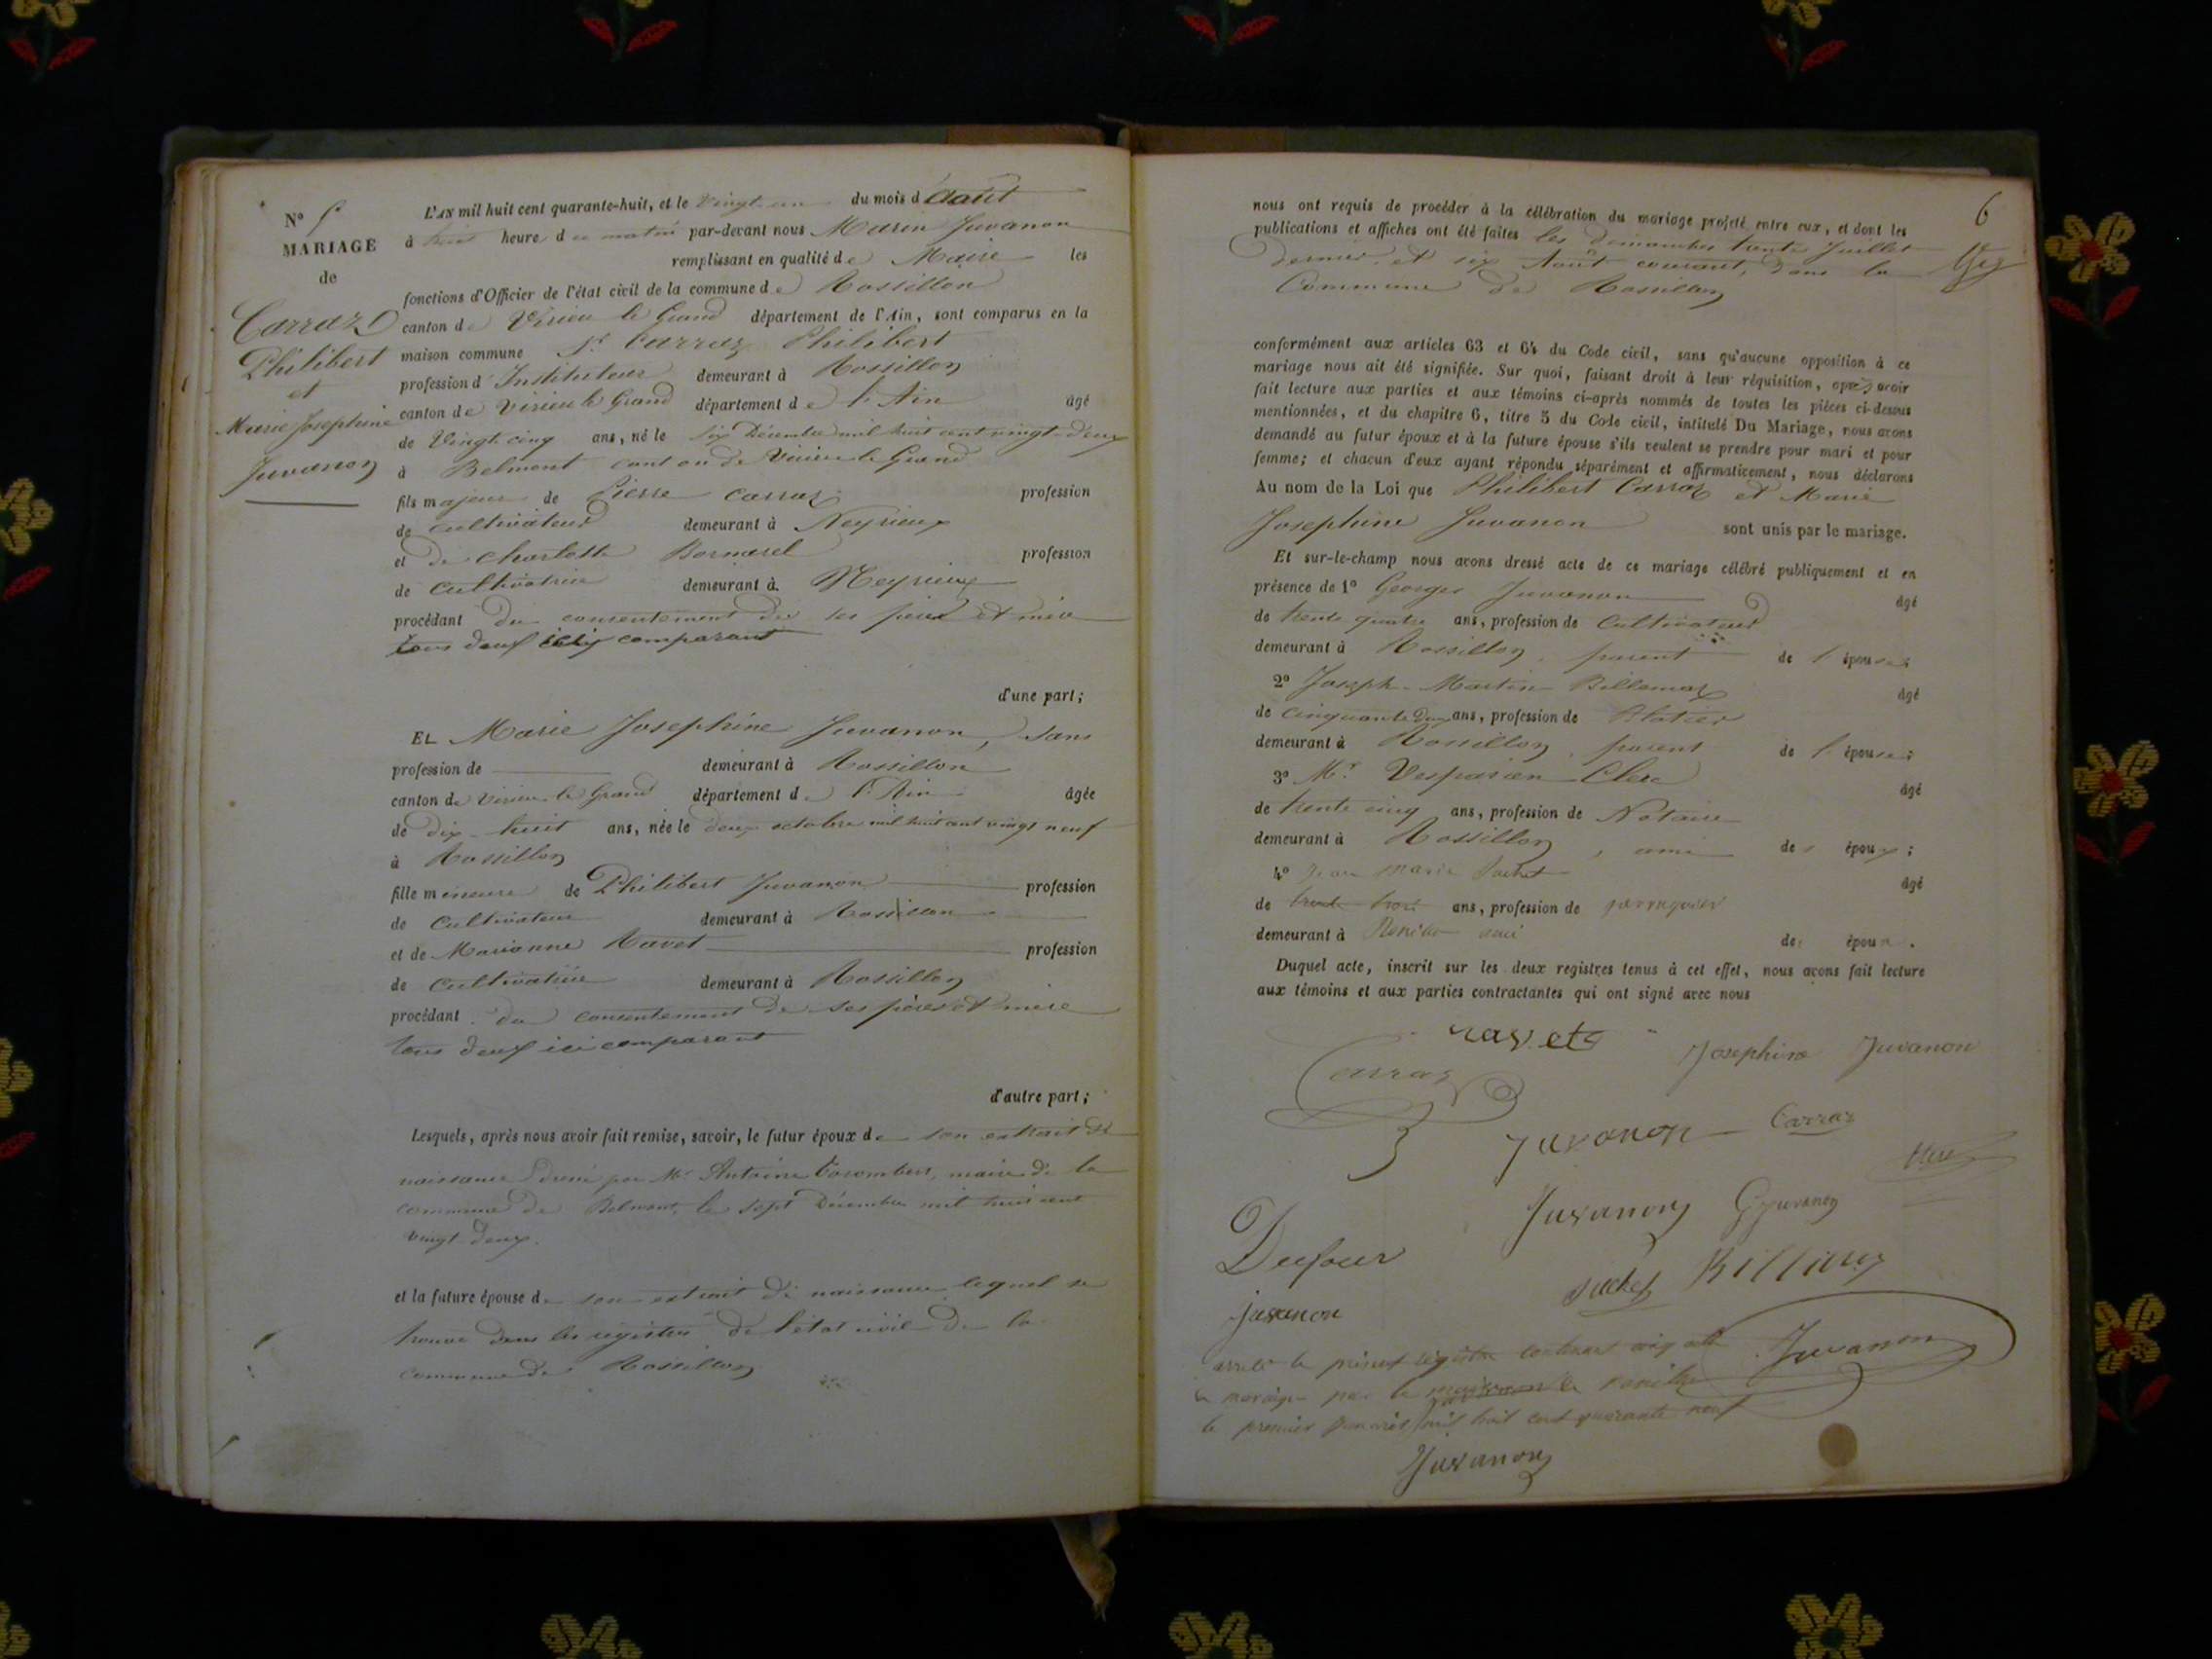 N° 5
MARIAGE
de
Carraz
Philibert
et
Marie Josephine
Juvanon
L'AN mil huit cent quarante-huit, et le vingt un du mois d'Août
à huit heure du matin par-devant nous Marin Juvanon
remplissant en qualité de Maire les
fonctions d'Officier de l'état civil de la commune de Rossillon
canton de Virieu le Grand département de l'Ain, sont comparus en la
maison commune Sr Carraz Philibert
profession d'Instituteur demeurant à Rossillon
canton de Virieu le Grand département de l'Ain âgé
de Vingt cinq ans, né le six Décembre mil huit cent vingt-deux
à Belmont canton de Virieu le Grand
fils majeur de Pierre Carraz profession
de cultivateur demeurant à Neyrieux
et de Charlotte Bornarel profession
de cultivatrice demeurant à Neyrieux
procédant du consentement de ses père et mère
tous deux ici comparant
d'une part;
Et Marie Josephine Juvanon, sans
profession de demeurant à Rossillon
canton de Virieu le Grand département de l'Ain âgée
de dix-huit ans, née le deux octobre mil huit cent vingt neuf
à Rossillon
fille mineure de Philibert Juvanon profession
de Cultivateur demeurant à Rossillon
et de Marianne Ravet profession
de Cultivatrice demeurant à Rossillon
procédant du consentement de ses père et mère
tous deux ici comparant
d'autre part;
Lesquels, après nous avoir fait remise, savoir, le futur époux de son extrait de
naissance dressé par Mr Antoine, maire de la
commune de Belmont, le sept Décembre mil huit cent
vingt-deux.
et la future épouse de son extrait de naissance lequel se
trouve dans les registres de l'état civil de la
commune de Rossillon
6
nous ont requis de procéder à la célébration du mariage projeté entre eux, et dont les
publications et affiches ont été faites les dimanches trente Juillet
dernier et six Août courant, dans la
Commune de Rossillon
conformément aux articles 63 et 64 du Code civil, sans qu'aucune opposition à ce
mariage nous ait été signifiée. Sur quoi, faisant droit à leur réquisition, après avoir
fait lecture aux parties et aux témoins ci-après nommés de toutes les pièces ci-dessus
mentionnées, et du chapitre 6, titre 5 du Code civil, intitulé Du Mariage, nous avons
demandé au futur époux et à la future épouse s'ils veulent se prendre pour mari et pour
femme; et chacun d'eux ayant répondu séparément et affirmativement, nous déclarons
Au nom de la Loi que Philibert Carraz et Marie
Josephine Juvanon sont unis par le mariage.
Et sur-le-champ nous avons dressé acte de ce mariage célébré publiquement et en
présence de 1° Georges Juvanon âgé
de trente quatre ans, profession de Cultivateur
demeurant à Rossillon, parent de l'épouse;
2° Joseph-Martin Billemaz âgé
de cinquante deux ans, profession de Platier
demeurant à Rossillon, parent de l'épouse;
3° Mr Vespasien Clerc âgé
de trente cinq ans, profession de Notaire
demeurant à Rossillon, ami des époux;
4° Jean marie Suchet âgé
de trente trois ans, profession de perruquier
demeurant à Rossillon ami des époux.
Duquel acte, inscrit sur les deux registres tenus à cet effet, nous avons fait lecture
aux témoins et aux parties contractantes qui ont signé avec nous
ravet
Josephine Juvanon
Carraz
Juvanon
Carraz
Clerc
Juvanon
G Juvanon
Dufour
Suchet
juvanon
arrêté le présent registre contenant cinq actes
de mariage par le maire de Rossillon
le premier janvier mil huit cent quarante neuf
Juvanon
Juvanon